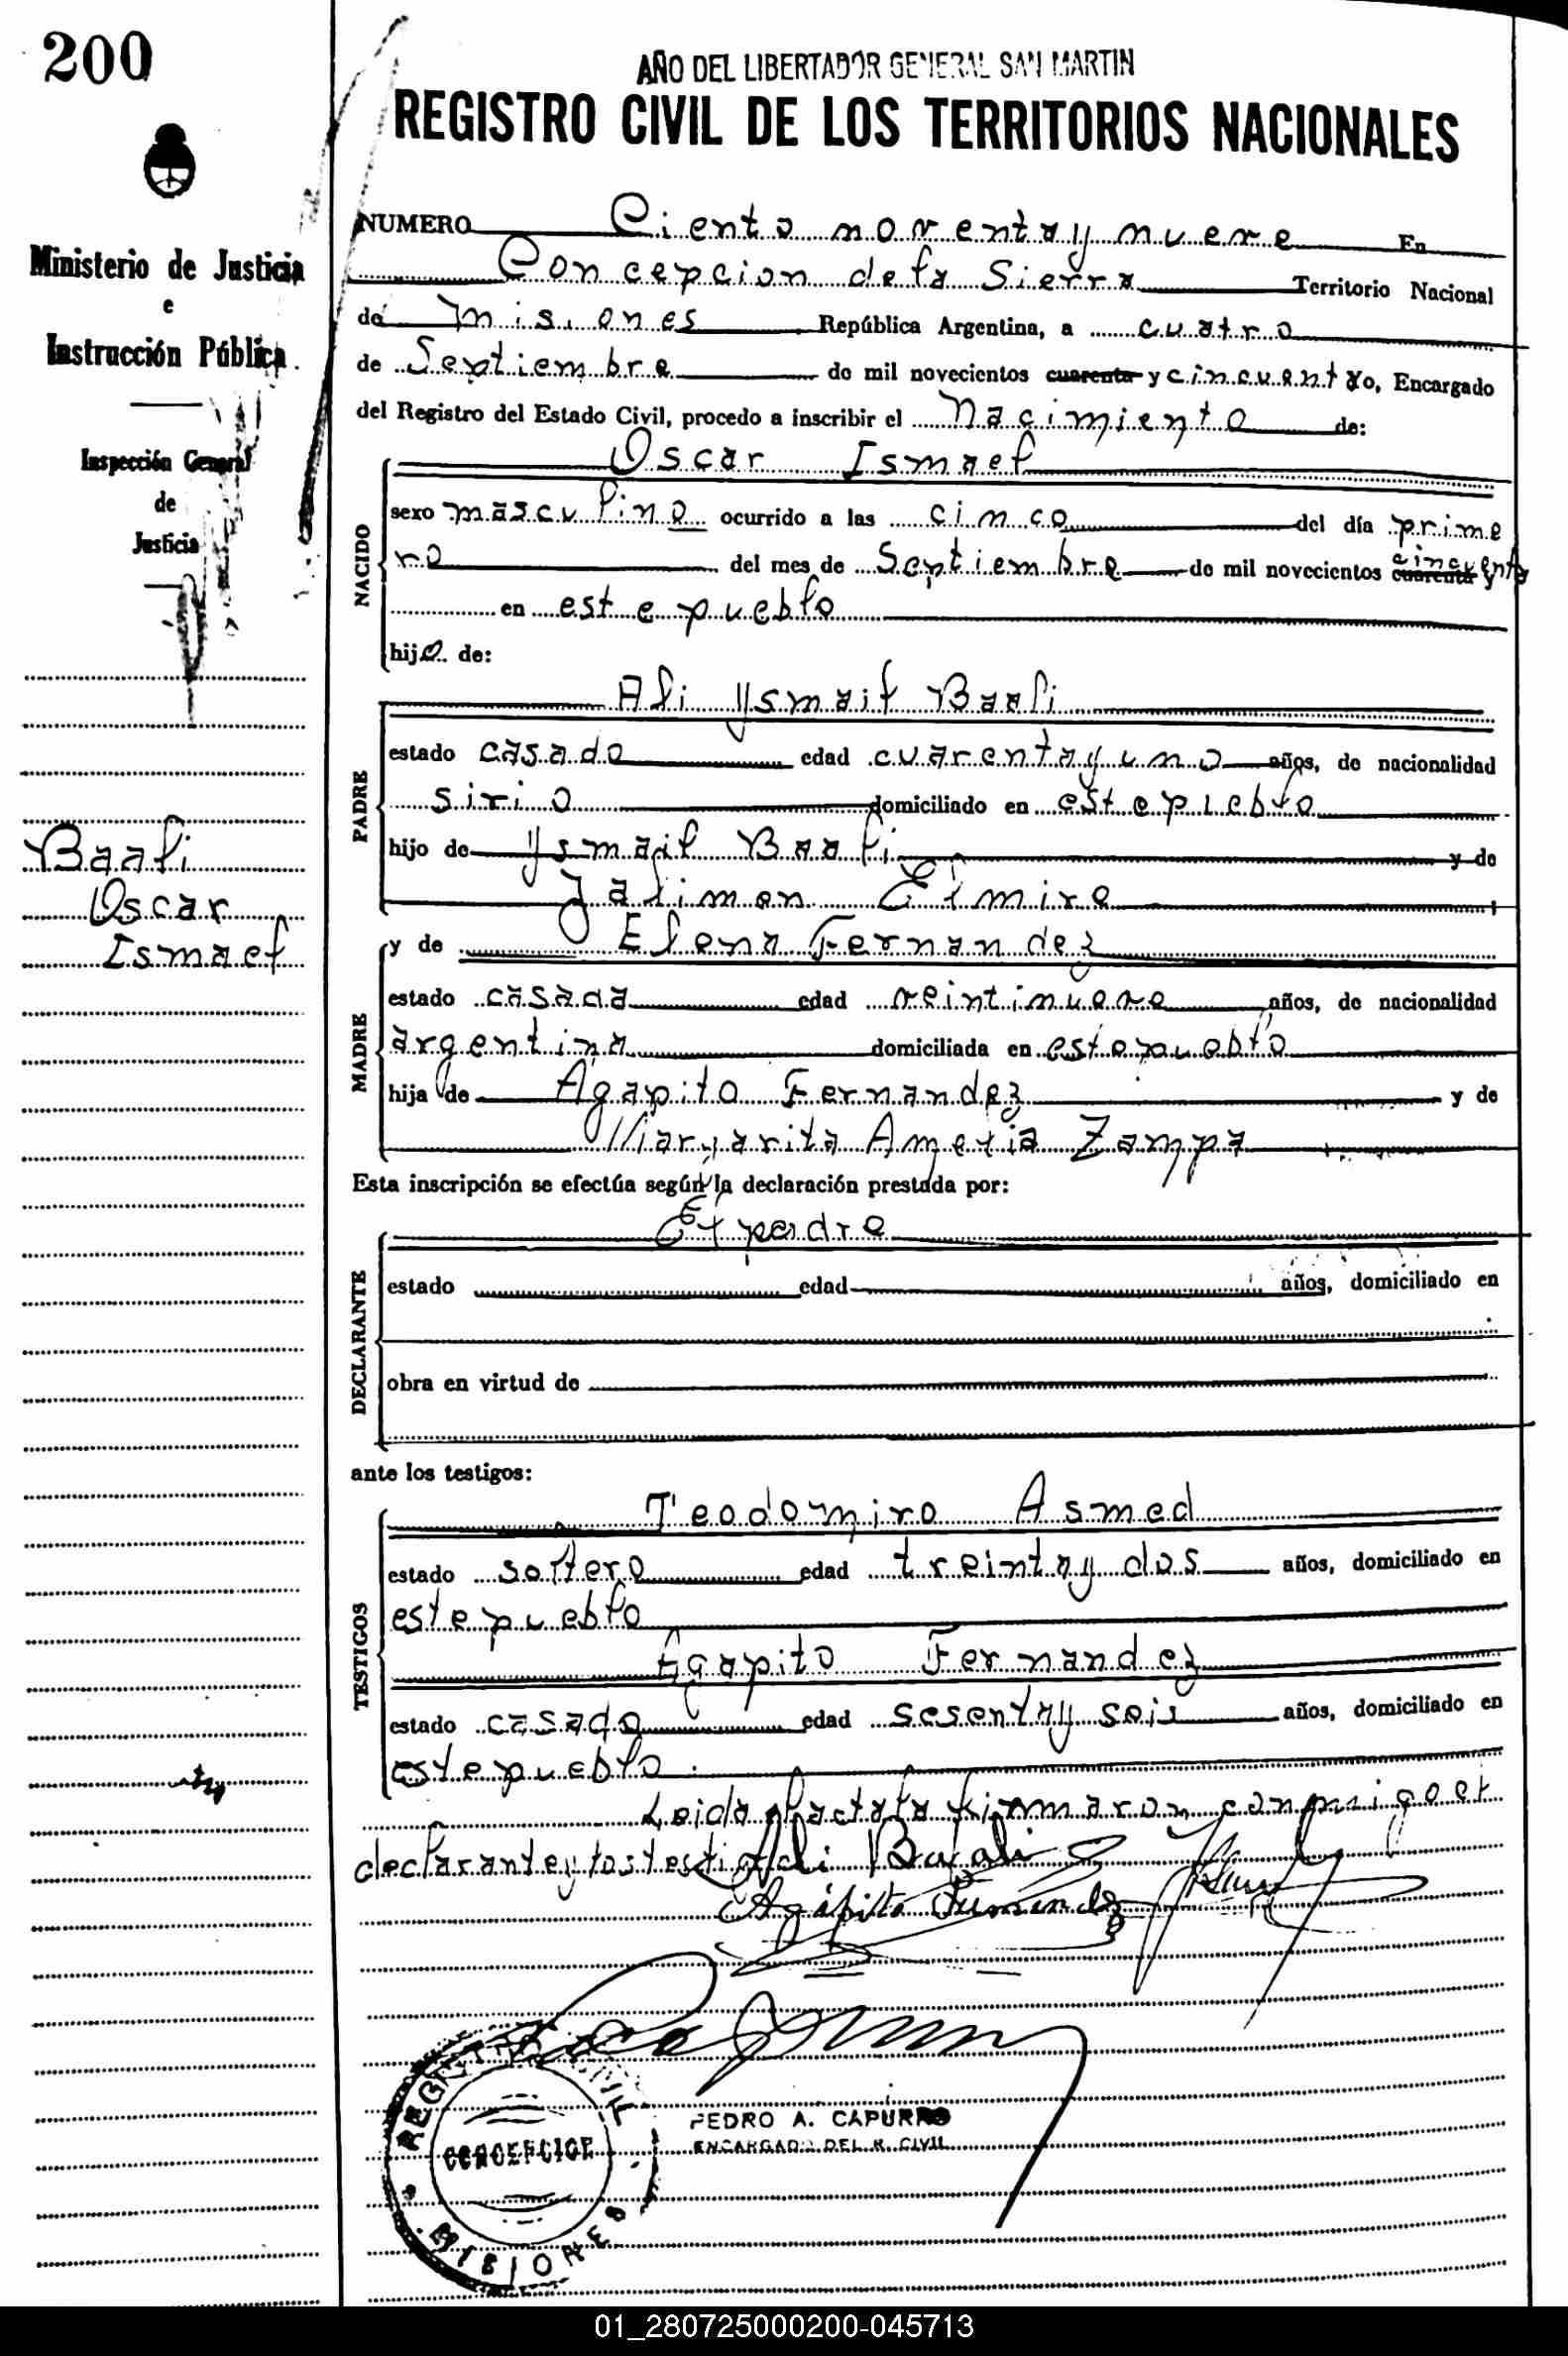 200
Ministerio de Justicia
e
Instrucción Pública
Inspección General
de
Justicia
Baali
Oscar
Ismael
AÑO DEL LIBERTADOR GENERAL SAN MARTIN
REGISTRO CIVIL DE LOS TERRITORIOS NACIONALES
NUMERO Ciento noventa y nueve En
Concepcion de la Sierra Territorio Nacional
de Misiones República Argentina, a cuatro
de Septiembre de mil novecientos cuarenta y cincuenta yo, Encargado
del Registro del Estado Civil, procedo a inscribir el Nacimiento de:
NACIDO
Oscar Ismael
sexo masculino ocurrido a las cinco del día prime
ro del mes de Septiembre de mil novecientos cuarenta y cincuenta
en este pueblo
hijo de:
PADRE
Ali Ysmail Baali
estado casado edad cuarenta y uno años, de nacionalidad
sirio domiciliado en este pueblo
hijo de Ysmail Baali y de
Jalimen Elmire
MADRE
y de Elena Fernandez
estado casada edad veintinueve años, de nacionalidad
argentina domiciliada en este pueblo
hija de Agapito Fernandez y de
Margarita Amelia Zampa
Esta inscripción se efectúa según la declaración prestada por:
DECLARANTE
El padre
estado edad años, domiciliado en
obra en virtud de
ante los testigos:
TESTIGOS
Teodomiro Asmed
estado soltero edad treinta y dos años, domiciliado en
este pueblo
Agapito Fernandez
estado casado edad sesenta y seis años, domiciliado en
este pueblo.
Leida el acta la firmaron conmigo el
declarante y los testigos Ali Baali
Agapito Fernandez
REGISTRO CIVIL
CONCEPCION
MISIONES
PEDRO A. CAPURRO
ENCARGADO DEL R. CIVIL
01_280725000200-045713